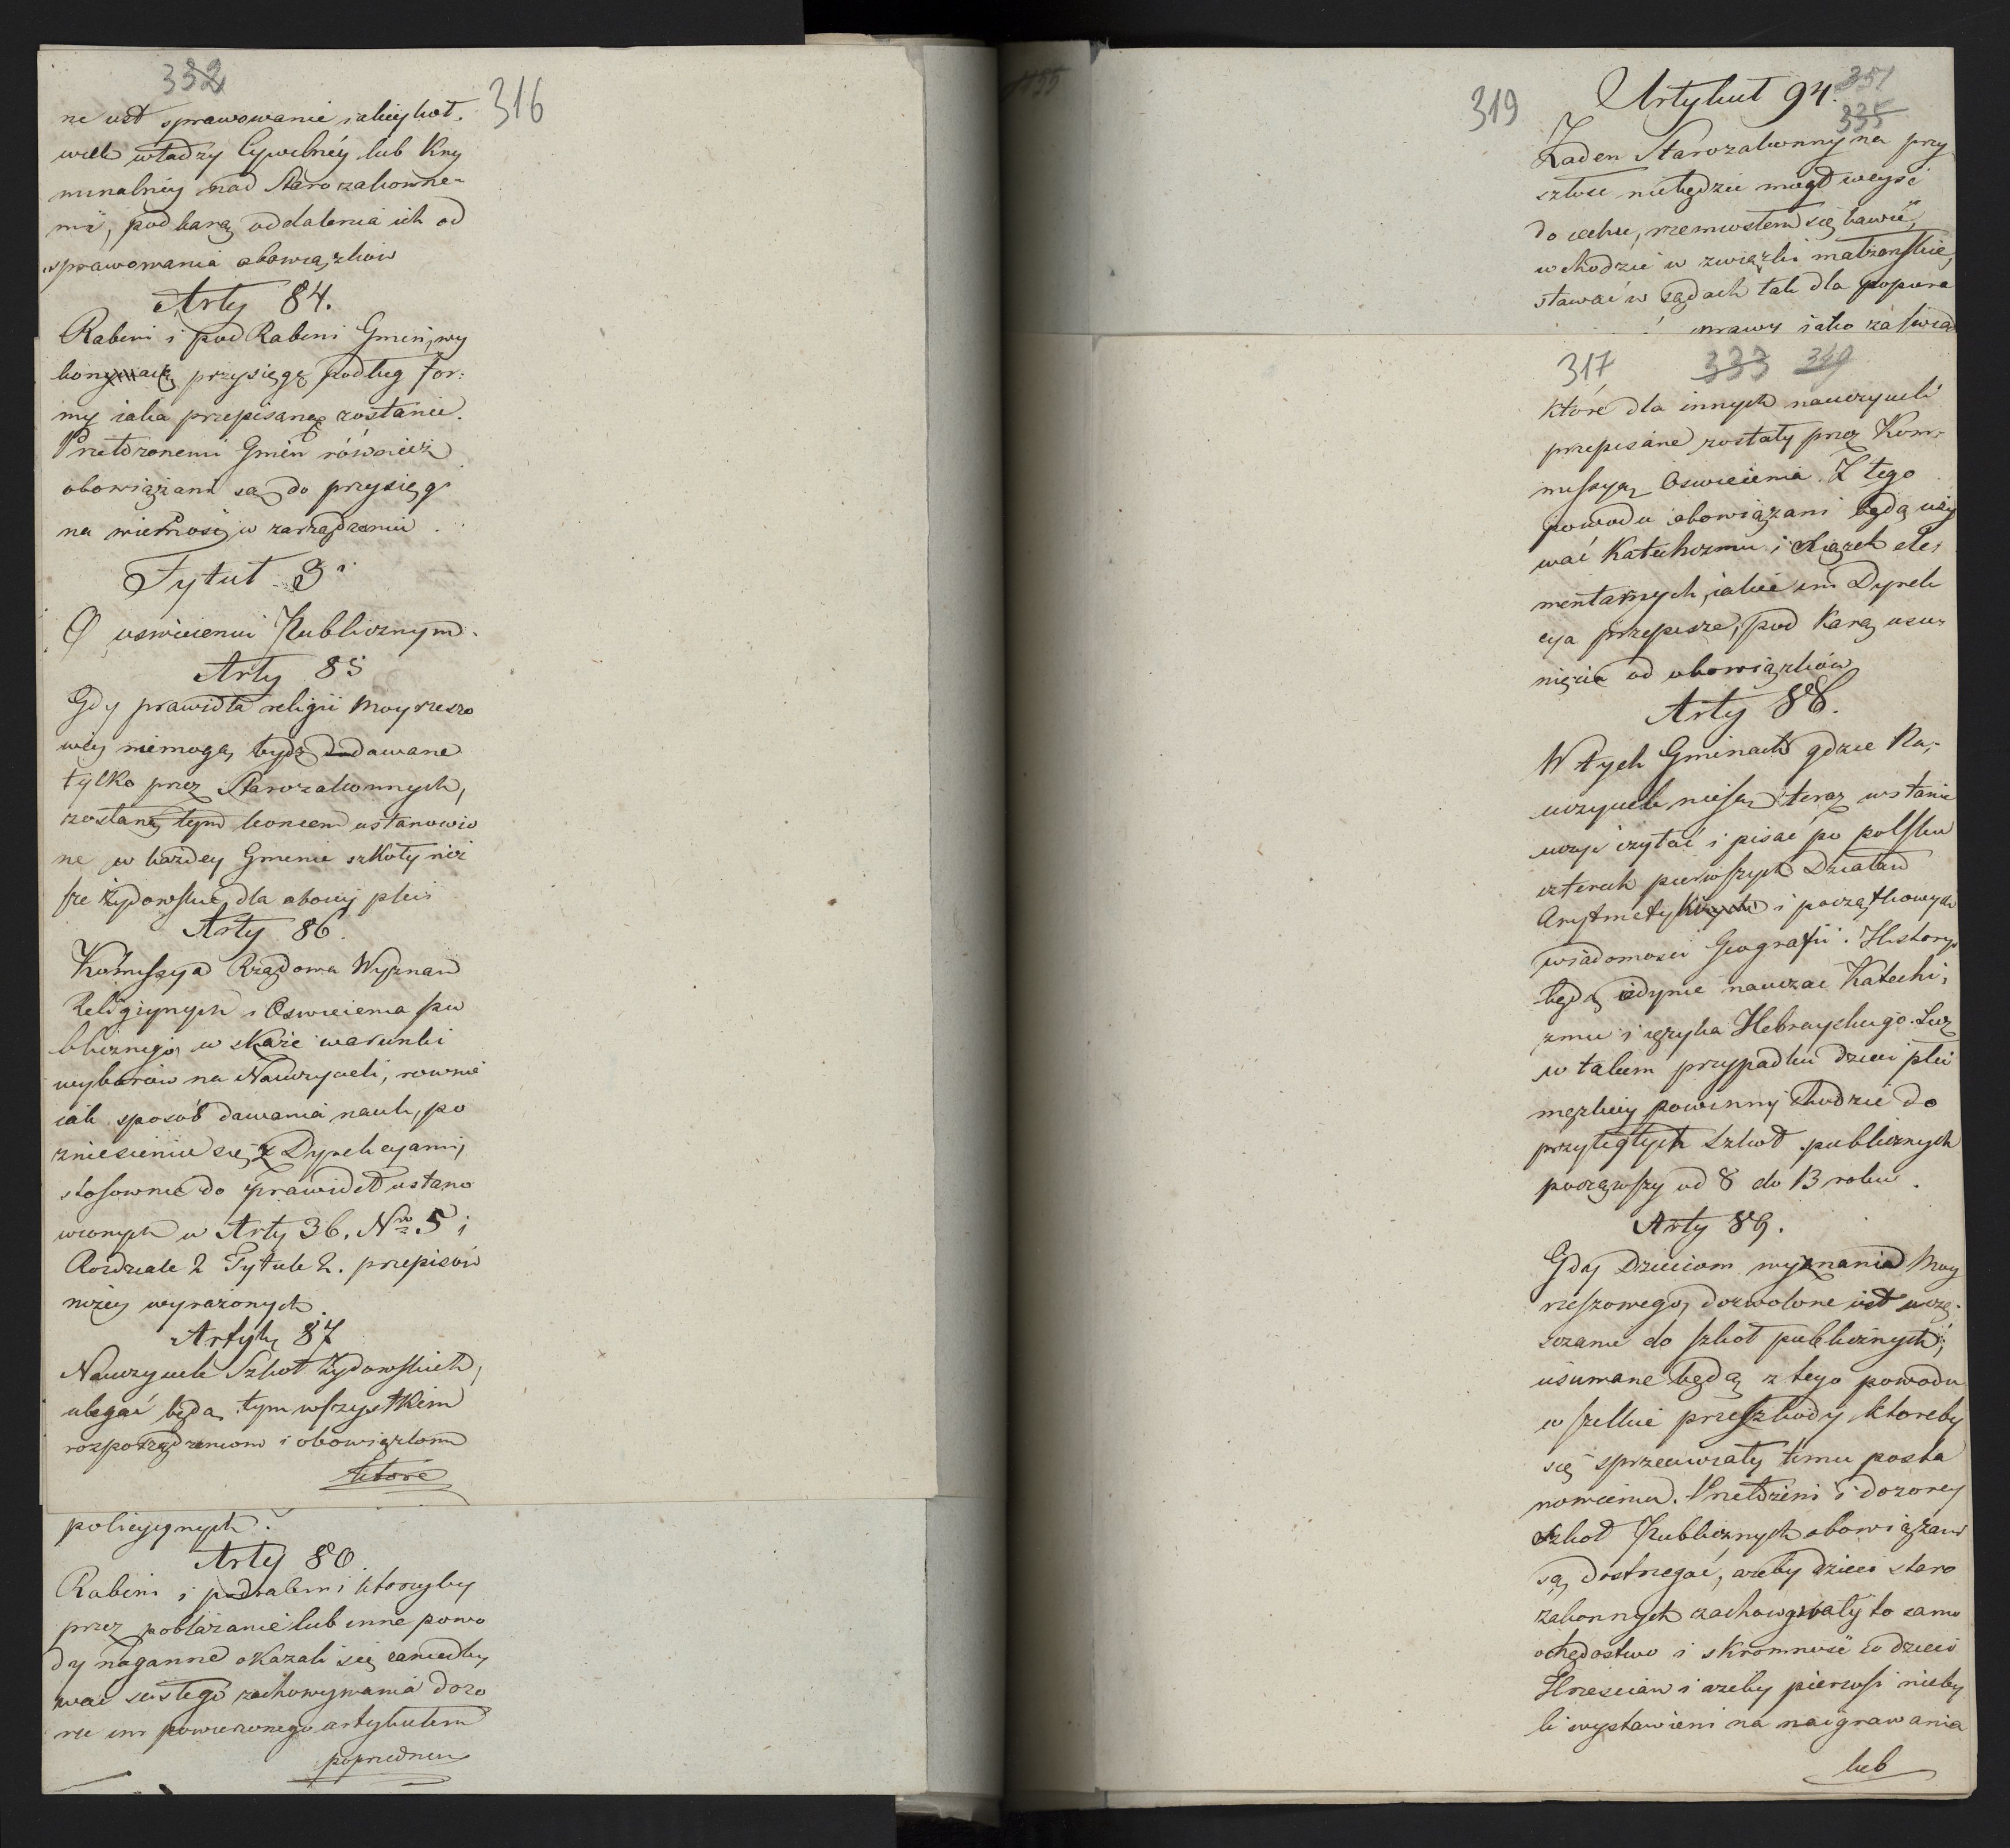 332
316
ne iest sprawowanie iakieykol-
wiek władzy Cywilnéy lub Kry
minalnéy nad Starozakonne-
mi, pod karą oddalenia ich od
sprawowania obowiązków
Arty 84.
Rabini i pod Rabini Gmin, wy
konywaią przysięgę podług for:
my iaka przepisaną zostanie.
Przełożonemi Gmin również
obowiązani są do przysięgi
na wierność w zarządzeniu.
Tytuł 3i
O oswieceniu Publicznym.
Arty 85
Gdy prawidła religii Moyzeszo
wéy niemogą bydź dodawane
tylko przez Starozakonnych,
zostaną tym koncem ustanowio
ne w każdey Gminie szkoły niż
sze żydowskie dla oboiéj płci
Arty 86.
Kommissya Rządowa Wyznań
Religiynych i Oswiecenia pu
blicznego, w skaże warunki
wyborów na Nauczycieli, rownie
iak sposób dawania nauk, po
zniesieniu się z Dyrekcyami,
stosownie do prawideł ustano
wionych w Arty 36. Nro 5 i
Rozdziale 2 Tytule 2. przepisów
niżey wyrażonych
Artyk 87
Nauczyciele Szkół żydowskich,
ulegać będą tym wszystkim
rozporządzeniom i obowiązkom
które
policyynych.
Arty 80.
Rabini i podrabini którzyby
przez pobłażanie lub inne powo
dy naganne okazali się zaniedby
wać scisłego zachowywania dozo
ru im powierzonego artykułem
poprzednim
319
Artykuł 94.
351
335
Żaden Starozakonny na przy
szłosc niebędzie mogł weysć
do cechu, rzemiosłem się bawić,
wchodzić w związki małżeńskie,
stawać w sądach tak dla popiera
sprawy iako zaswiad
317
333 349
które dla innych nauczycieli
przepisane zostały przez Kom-
missyą Oswiecenia. Z tego
powodu obowiązani będą uży
wać Katechizmu i Książek ele:
mentarnych, iakie im Dyrek
cya przepisze, pod Karą usu-
nięcia od obowiązków
Arty 88.
W tych Gminach gdzie Na,-
uczyciele niesą teraz wstanie
uczyć czytać i pisać po polsku
czterech pierwszych Działań
Arytmetyki i początkowych
wiadomosci Geografii i Historyi
będą iedynie nauczać Katechi,
zmu i ięzyka Hebrayskiego. Lecz
w takim przypadku dzieci płci
męzkiey powinny chodzić do
przyległych Szkół publicznych
począwszy od 8 do 13 roku.
Arty 89.
Gdy Dzieciom wyznania Moy
żeszowego, dozwolone iest uczę-
szczanie do szkół publicznych,
usuwane będą z tego powodu
wszelkie przeszkody któreby
się sprzeciwiały temu posta
nowieniu. Przełożeni i dozorcy
Szkół Publicznych obowiązani
są dostrzegać, ażeby dzieci staro
zakonnych zachowywały to samo
ochędostwo i skromność co dzieci
Hrzescian i ażeby pierwsi nieby
li wystawieni na naigrawania
lub